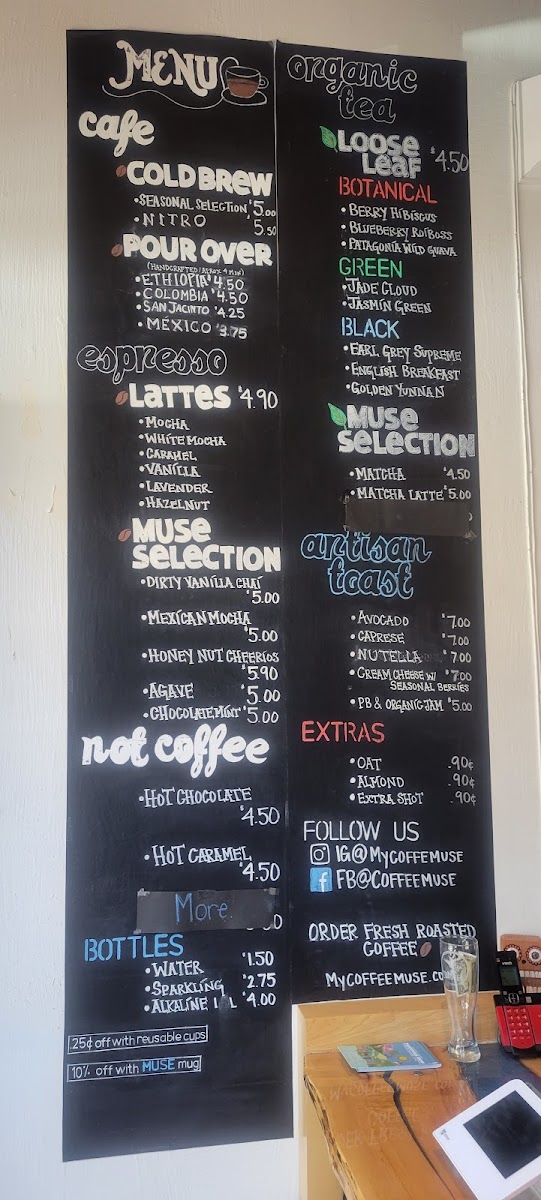 MENU
cafe
COLD BREW
•SEASONAL SELECTION $5.00
•NITRO $5.50
POUR OVER
•ETHIOPIA $4.50
•COLOMBIA $4.50
•SAN JACINTO $4.25
•MEXICO $3.75
espresso
LATTES $4.90
•MOCHA
•WHITE MOCHA
•CARAMEL
•VANILLA
•LAVENDER
•HAZELNUT
MUSE
SELECTION
•DIRTY VANILLA CHAI
$5.00
•MEXICAN MOCHA
$5.00
•HONEY NUT CHEERIOS
$5.90
•AGAVE $5.00
•CHOCOLATE MINT $5.00
not coffee
•HOT CHOCOLATE
$4.50
•HOT CARAMEL
$4.50
More.
BOTTLES
•WATER $1.50
•SPARKLING $2.75
•ALKALINE $4.00
.25¢ off with reusable cups
10% off with MUSE mug
organic
tea
LOOSE
LEAF $4.50
BOTANICAL
•BERRY HIBISCUS
•BLUEBERRY ROIBOSS
•PATAGONIA WILD GUAVA
GREEN
•JADE CLOUD
•JASMIN GREEN
BLACK
•EARL GREY SUPREME
•ENGLISH BREAKFAST
•GOLDEN YUNNAN
MUSE
SELECTION
•MATCHA $4.50
•MATCHA LATTE $5.00
artisan
toast
•AVOCADO $7.00
•CAPRESE $7.00
•NUTELLA $7.00
•CREAM CHEESE W/ $7.00
SEASONAL BERRIES
•PB & ORGANIC JAM $5.00
EXTRAS
•OAT .90¢
•ALMOND .90¢
•EXTRA SHOT .90¢
FOLLOW US
IG@MYCOFFEMUSE
FB@COFFEEMUSE
ORDER FRESH ROASTED
COFFEE
MYCOFFEEMUSE.CO